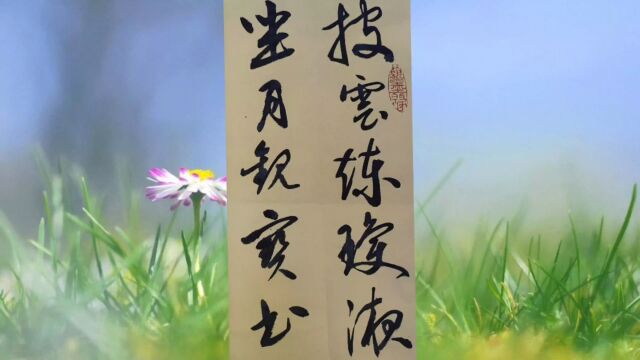 披雲煉瓊液
坐月觀寶書